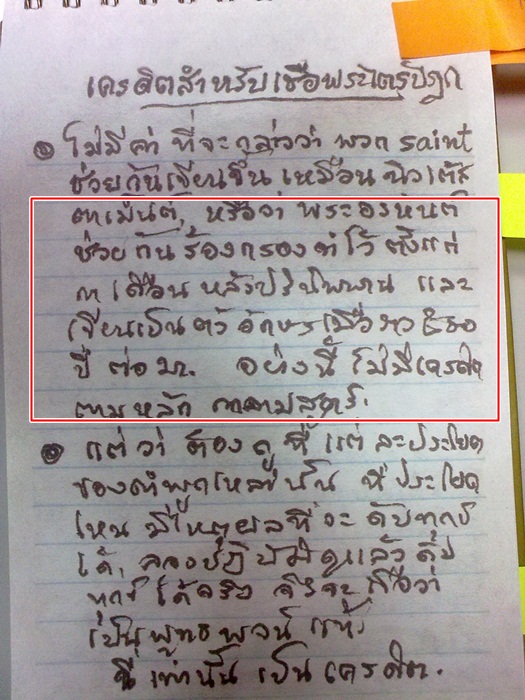 เครดิตสำหรับเชื่อพระไตรปิฎก
ไม่มีค่า ที่จะกล่าวว่า พวก saint
ช่วยกันเขียนขึ้น เหมือน นิวเตส
ตาเม้นต์, หรือว่า พระอรหันต์
ช่วยกันร้อยกรองทำไว้ ตั้งแต่
๓ เดือน หลังปรินิพพาน และ
เขียนเป็นตัวอักษรเมื่อราว ๕๐๐
ปี ต่อมา. อย่างนี้ ไม่มีเครดิต
ตามหลัก กาลามสูตร.
แต่ว่า ต้องดูที่ แต่ละประโยค
ของคำพูดเหล่านั้น ที่ประโยค
ไหน มีเหตุผลที่จะ ดับทุกข์
ได้, ลองปฏิบัติดูแล้ว ดับ
ทุกข์ได้จริง จึงจะถือว่า
เป็นพุทธพจน์ แท้;
นี่ เท่านั้น เป็นเครดิต.